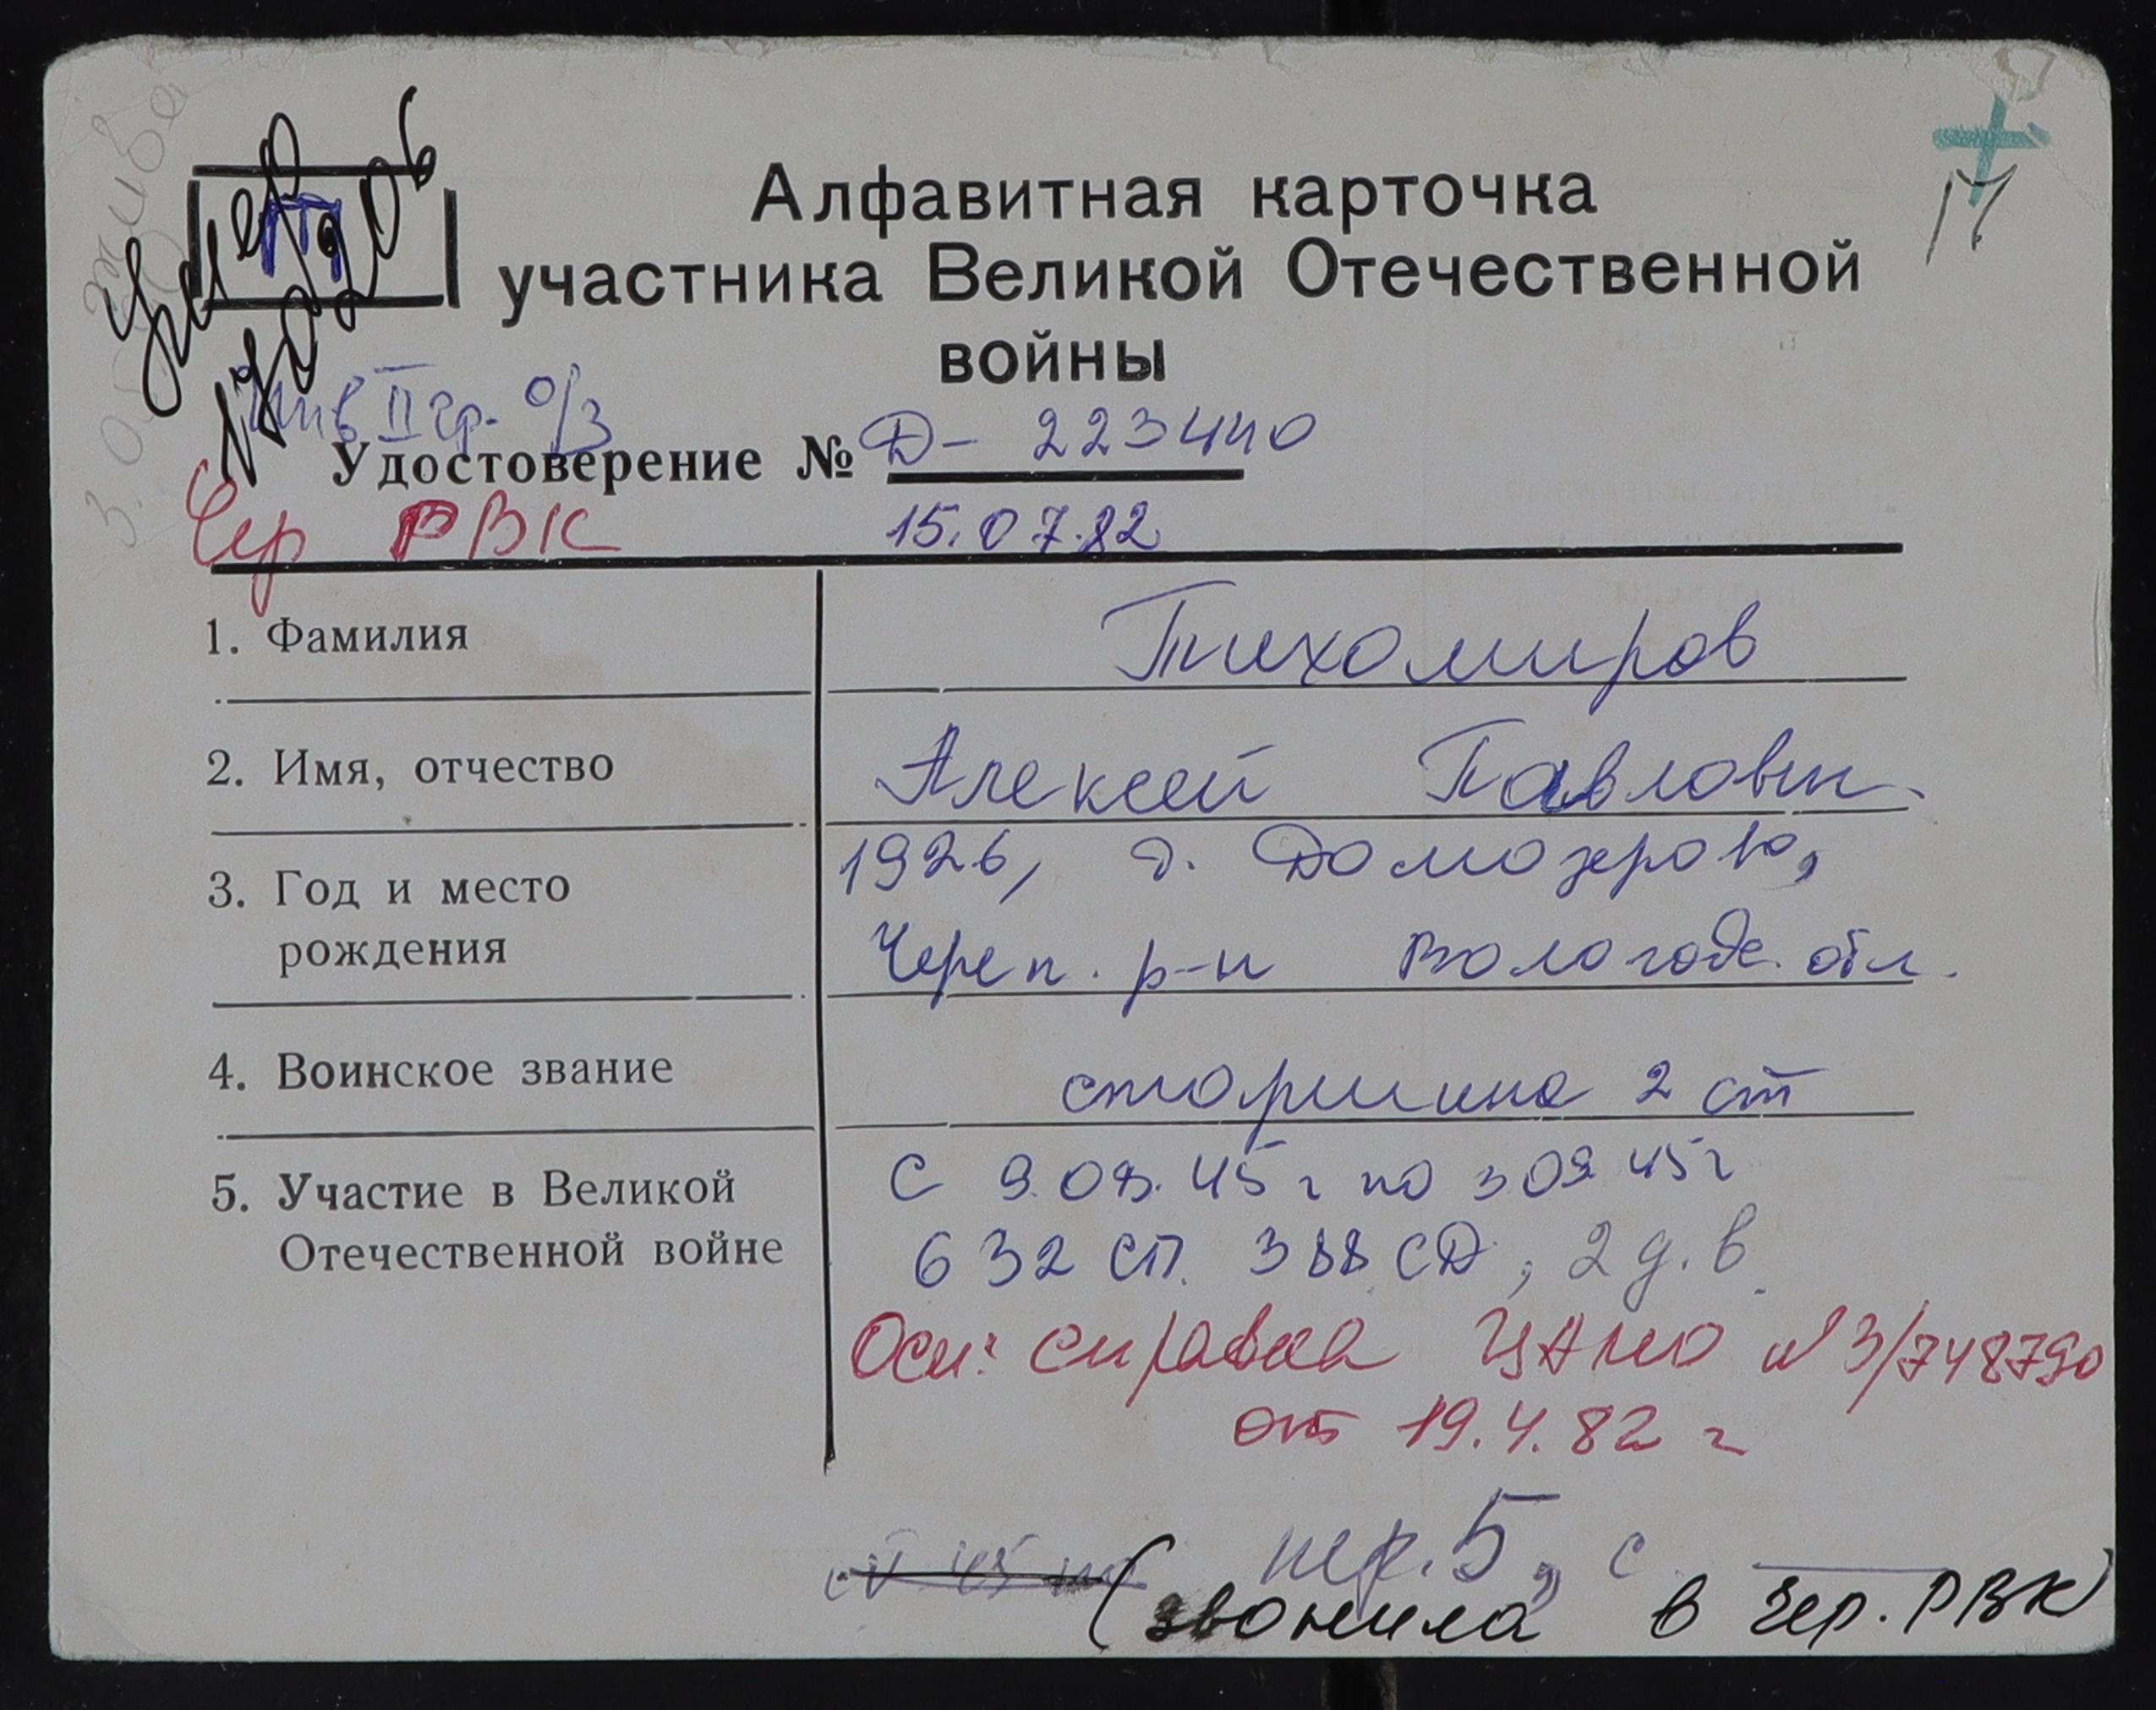 +
17
умер
Алфавитная карточка
участника Великой Отечественной
войны
инв II гр. о/з
Удостоверение № Д- 223440
Чер РВК 15.07.82
1. Фамилия Тихомиров
2. Имя, отчество Алексей Павлович
3. Год и место рождения 1926, д. Домозерово,
Череп. р-н Вологодс. обл.
4. Воинское звание старшина 2 ст
5. Участие в Великой Отечественной войне С 9.08.45 г по 3 09 45 г
632 сп. 388 СД, 2 д.в.
Осн: справка ЦАМО N 3/748790
от 19.4.82 г
пер. 5, с
(звонила в Чер. РВК)